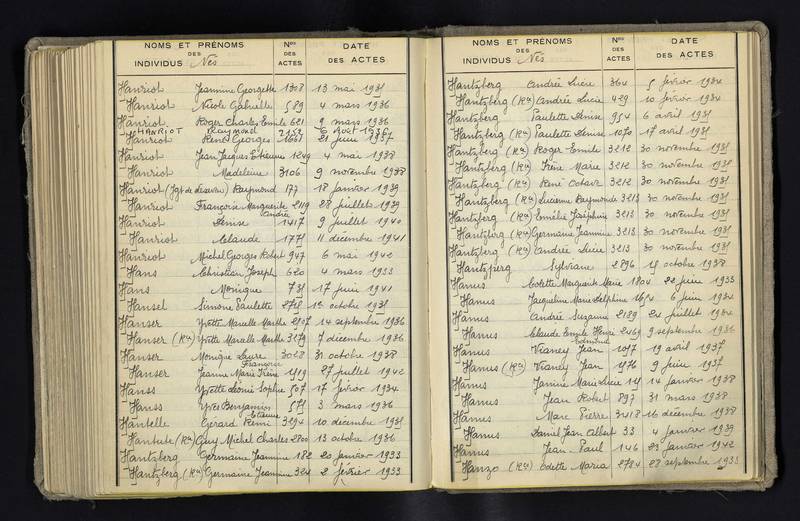 NOMS ET PRÉNOMS DES INDIVIDUS Nés
Nos DES ACTES
DATE DES ACTES
Hanriot Jeannine Georgette 1308 13 mai 1931
Hanriot Nicole Gabrielle 589 4 mars 1936
Hanriot Roger Charles Emile 621 9 mars 1936
HANRIOT Raymond 2152 6 août 1936
Hanriot René Georges 1661 21 juin 1937
Hanriot Jean Jacques Etienne 1249 4 mai 1938
Hanriot Madeleine 3106 9 novembre 1938
Hanriot (Jugt de désaveu) Raymond 177 18 janvier 1939
Hanriot Françoise Marguerite 2119 28 juillet 1939
Andrée
Hanriot Denise 1417 9 juillet 1940
Hanriot Claude 1771 11 décembre 1941
Hanriot Michel Georges Robert 947 6 mai 1942
Hans Christian Joseph 620 4 mars 1933
Hans Monique 731 17 juin 1941
Hansel Simone Paulette 2718 12 octobre 1931
Hanser Yvette Marcelle Marthe 2507 14 septembre 1936
Hanser (Ron) Yvette Marcelle Marthe 3279 7 décembre 1936
Hanser Monique Laure 3028 31 octobre 1938
Françoise
Hanser Jeanne Marie Irène 1519 27 juillet 1942
Hanss Yvette Léonie Sophie 507 17 février 1934
Hanss Yves Benjamin 571 3 mars 1936
Etienne
Hantelle Gérard Rémi 3294 10 décembre 1931
Hantute (Ron) Guy Michel Charles 2800 13 octobre 1936
Hantzberg Germaine Jeannine 182 20 janvier 1933
Hantzberg (Ron) Germaine Jeannine 324 2 février 1933
NOMS ET PRÉNOMS DES INDIVIDUS Nés
Nos DES ACTES
DATE DES ACTES
Hantzberg Andrée Lucie 364 5 février 1934
Hantzberg (Ron) Andrée Lucie 429 10 février 1934
Hantzberg Paulette Denise 954 6 avril 1931
Hantzberg (Ron) Paulette Denise 1070 17 avril 1931
Hantzberg (Ron) Roger Emile 3212 30 novembre 1931
Hantzberg (Ron) Irène Marie 3212 30 novembre 1931
Hantzberg (Ron) René Octave 3212 30 novembre 1931
Hantzberg (Ron) Lucienne Raymonde 3213 30 novembre 1931
Hantzberg (Ron) Emélie Joséphine 3213 30 novembre 1931
Hantzberg (Ron) Germaine Jeannine 3213 30 novembre 1931
Hantzberg (Ron) Andrée Lucie 3213 30 novembre 1931
Hantzperg Sylviane 2896 15 octobre 1938
Hanus Colette Marguerite Marie 1804 22 juin 1933
Hanus Jacqueline Marie Delphine 1614 6 juin 1934
Hanus André Suzanne 2189 20 juillet 1934
Hanus Claude Emile Henri 2469 9 septembre 1936
Edmond
Hanus Vianey Jean 1057 19 avril 1937
Hanus (Ron) Vianey Jean 1576 9 juin 1937
Hanus Janine Marie Luce 151 14 janvier 1938
Hanus Jean Robert 897 31 mars 1938
Hanus Marc Pierre 3418 16 décembre 1938
Hanus Daniel Jean Albert 33 4 janvier 1939
Hanus Jean Paul 146 23 janvier 1942
Hanzo (Ron) Odette Maria 2784 28 septembre 1933